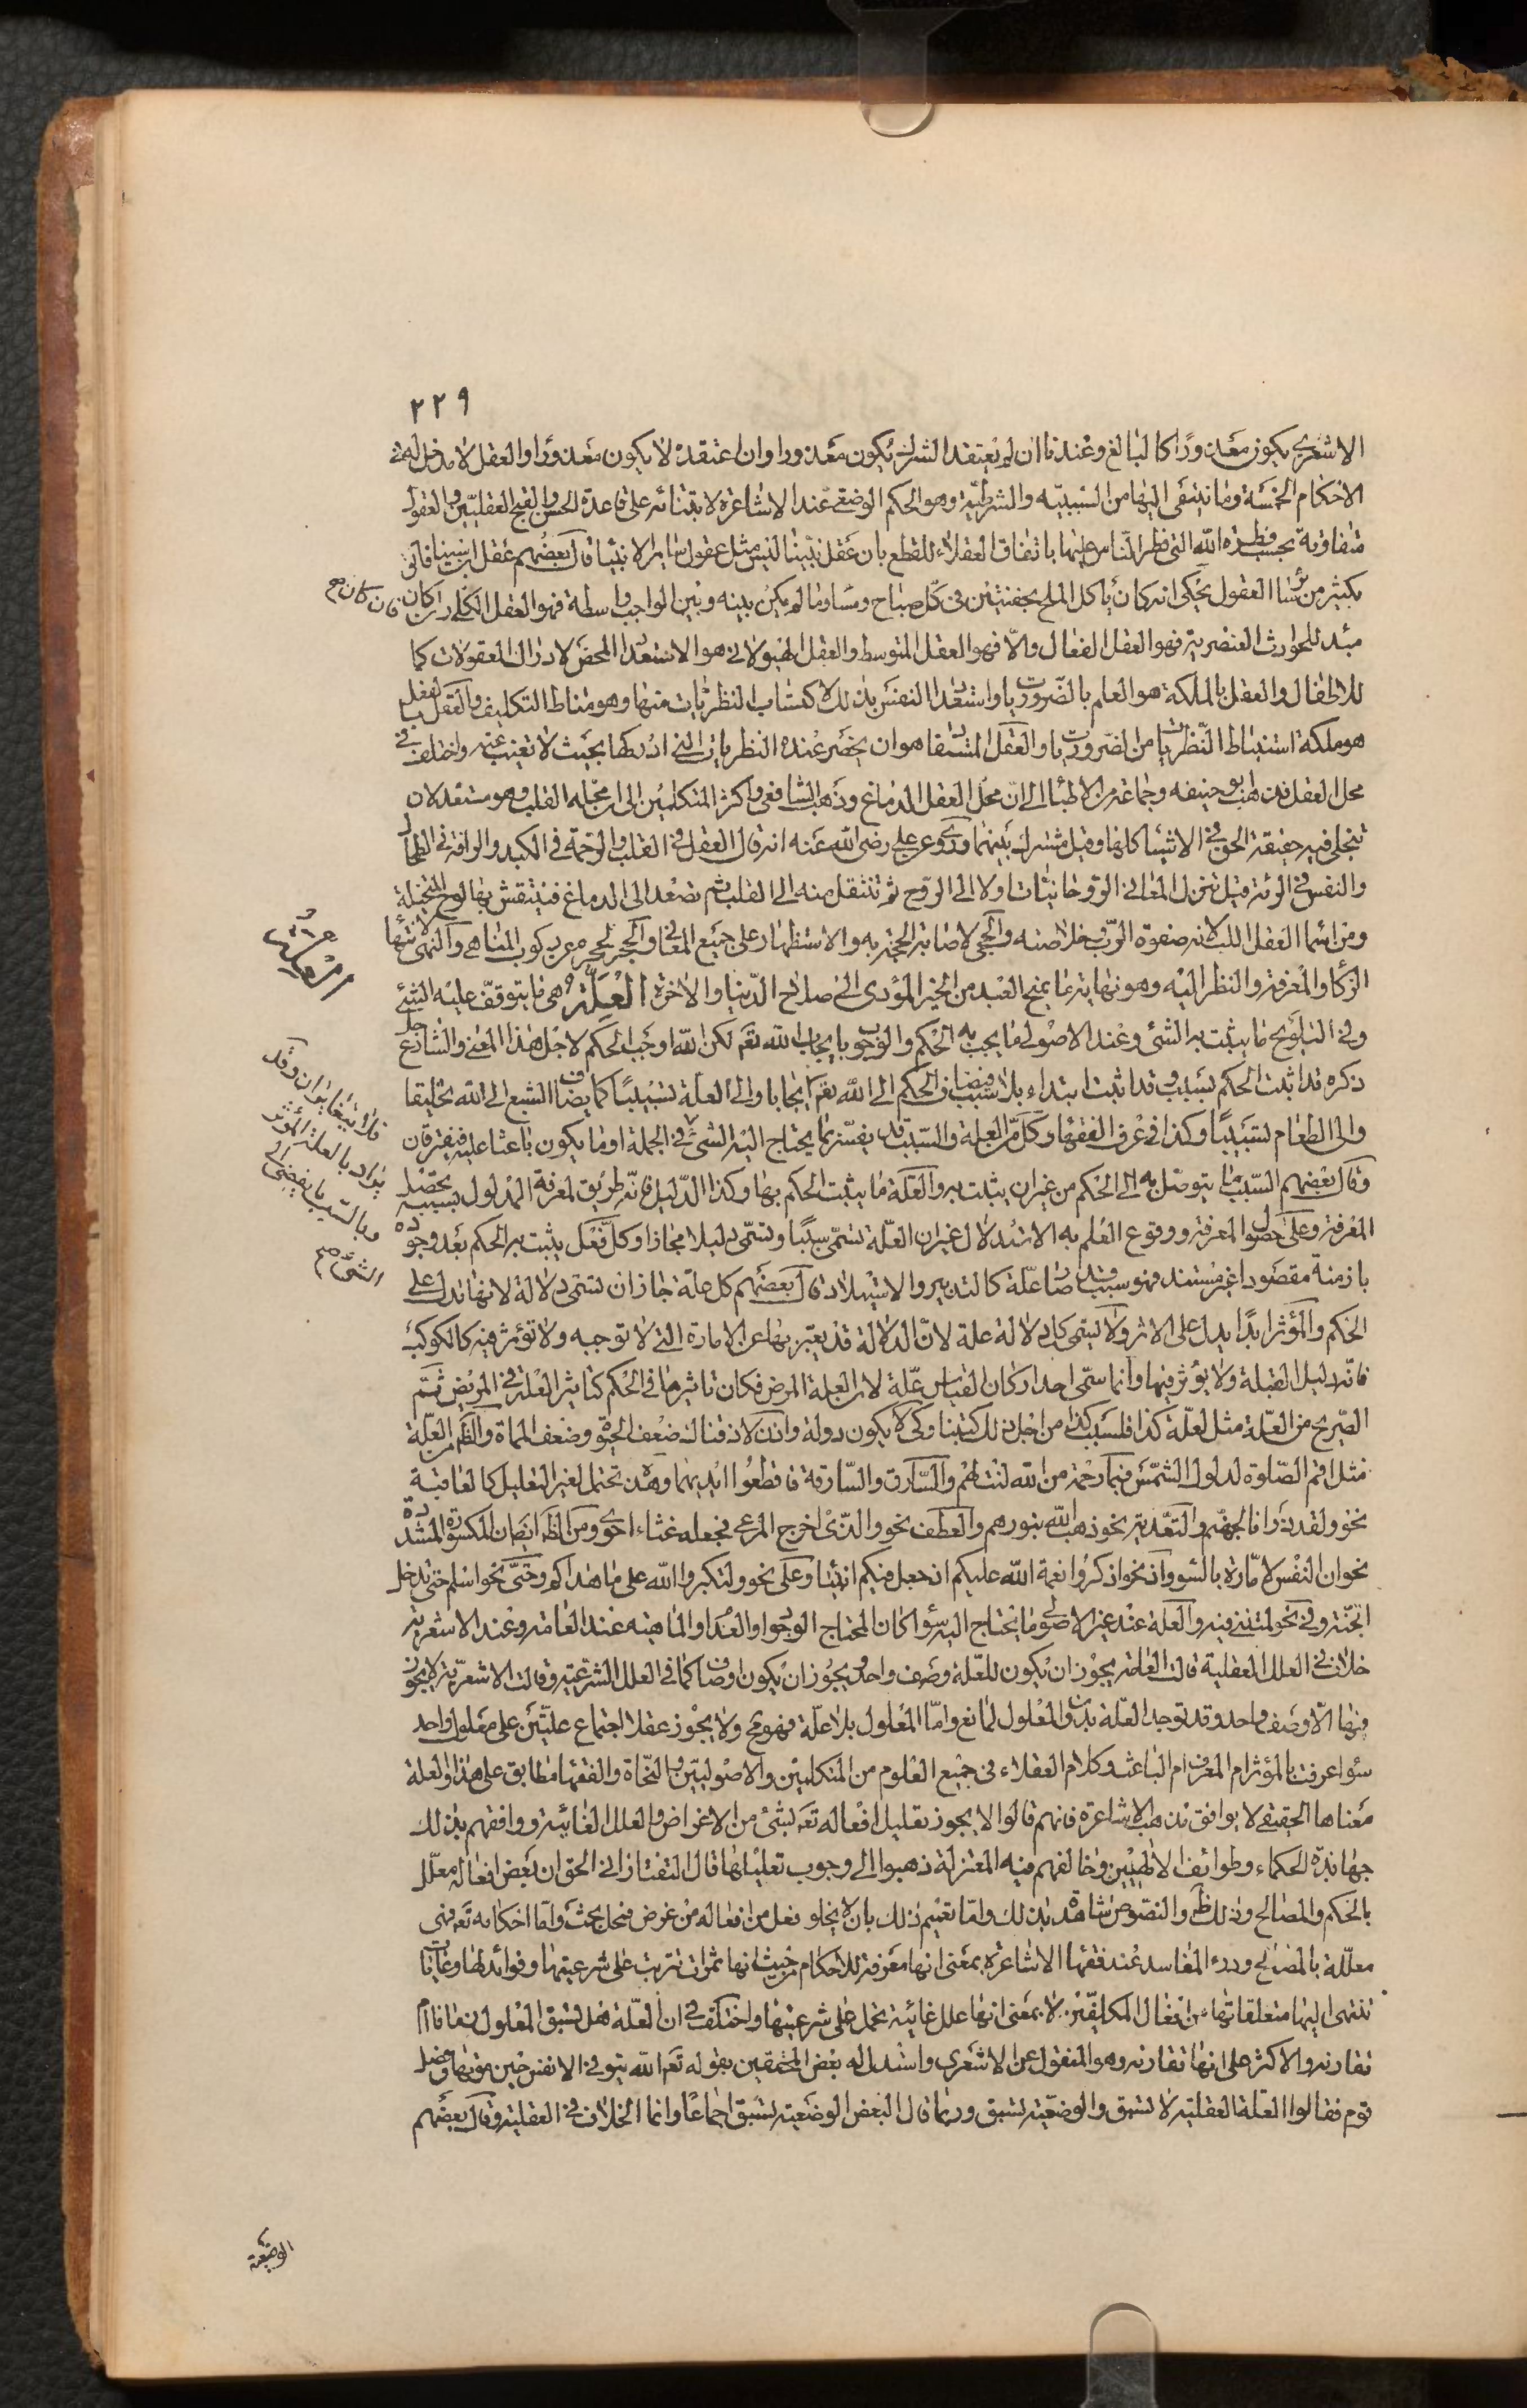 ٢٢٩
الاشعرى يكون معذورًا كالبالغ وعندنا ان لم يعتقد الشرك يكون معذورا وان اعتقد لا يكون معذورا والعقل لا مدخل له فى
الاحكام الخمسة وما ينتمى اليها من السببيه والشرطية وهو الحكم الوضعى عند الاشاعرة لابتنائه على قاعدة الحسن والقبح العقليين والعقول
متفاوتة بحسب فطرة الله التى فطر الناس عليها باتفاق العقلاء للقطع بان عقل نبينا ليس مثل عقول سائر الانبياء قال بعضهم عقل ابن سينا فائق
بكثير من سائر العقول يحكى انه كان ياكل الملح بجفنتين فى كل صباح ومساء وما لم يكن بينه وبين الواجب واسطة فهو العقل الكلى ان كان
فان كان صح
مبدء للحوادث العنصرية فهو العقل الفعال والّا فهو العقل المتوسط والعقل الهيولانى هو الاستعداد المحض لادراك المعقولات كما
للاطفال والعقل بالملكة هو العلم بالضروريات واستعداد النفس بذلك لاكتساب النظريات منها وهو مناط التكليف والعقل بالفعل
هو ملكة استنباط النظريات من الضروريات والعقل المستفاد هو ان يحضر عنده النظريات التى ادركها بحيث لا تغيب عنه واختلف فى
محل العقل فذهب ابو حنيفه وجماعة من الاطباء الى انّ محل العقل الدماغ وذهب الشافعى واكثر المتكلمين الى ان محله القلب وهو مستعد لان
تنجلى فيه حقيقة الحق فى الاشياء كلها وقيل مشترك بينهما وروى عن على رضى الله عنه انه قال العقل فى القلب والرحمة فى الكبد والرافة فى الطحال
والنفس فى الرئة قيل تنزل المعانى الروحانيات اولا الى الروح ثم تنتقل منه الى القلب ثم تصعد الى الدماغ فينتقش بها لوح المتخيلة
ومن اسماء العقل اللب لانه صفوة الرب وخلاصته والحجى لاصابة الحجة به والاستظهار على جميع المعانى والحجر لحجره عن ركوب المناهى والنهى لانتهاء
الذكاء والمعرفة والنظر اليه وهو نهاية ما يمنح العبد من الخير المؤدى الى صلاح الدنيا والاخرة العلّة هى ما يتوقف عليه الشئ
العلة
وفى التلويح ما يثبت به الشئ وعند الاصولى ما يجب به الحكم والوجوب بايجاب الله تعَ لكن الله اوجب الحكم لاجل هذا المعنى والشارع جل
ذكره قد اثبت الحكم بسبب وقد اثبت ابتداء بلا سبب فيضاف الحكم الى الله تعَ ايجابا والى العلة تسبيبًا كما يضاف الشبع الى الله تخليقا
والى الطعام تسبيبًا وكذا فى عرف الفقهاء وكل من العلة والسبب قد يفسّر بما يحتاج اليه الشئ فى الجملة او ما يكون باعثا عليه فيفترقان
فلا يتغايران وقد
يراد بالعلة المؤثر
وبالسبب ما يفضى الى
الشئ صح
وقال بعضهم السبب ما يتوصل به الى الحكم من غير ان يثبت به والعلة ما يثبت الحكم بها وكذا الدليل فانه طريق لمعرفة المدلول بسببه تحصل
المعرفة وعلى حصول المعرفة ووقوع العلم به الاستدلال غير ان العلّة تسمّى سببًا وتسمّى دليلا مجازا وكل فعل يثبت به الحكم بعد وجوده
بازمنة مقصودا غير مستند فهو سبب قد صار علّة كالتدبير والاستيلاد قال بعضهم كل علّة جاز ان تسمى دلالة لانها تدل على
الحكم والمؤثر ابدًا يدل على الاثر ولا تسمى كل دلالة علة لانّ الدلالة قد يعبّر بها عن الامارة التى لا توجبه ولا تؤثر فيه كالكوكب
فانّه دليل القبلة ولا يؤثر فيها وانما سمّى احد اركان القياس علّة لان العلة المرض فكان تاثيرها فى الحكم كتاثير العلة فى المريض ثمّ
الصريح من العلّة مثل لعلّة كذا فلسبب كذا من اجل ذلك كتبنا وكى لا يكون دولة واذن لاذقناك ضعف الحيوة وضعف المماة والظَّم من العلّة
مثل اقم الصلوة لدلوك الشمس فبما رحمة من الله لنت لهم والسارق والسارقة فاقطعوا ايديهما وهذه تحتمل لغير التعليل كالعاقبة
نحو ولقد ذرانا لجهنم والتعدية نحو ذهب الله بنورهم والعطف نحو والذى اخرج المرعى فجعله غثاء احوى ومن الظَّم ايضا ان المكسورة المشددة
نحو ان النفس لامّارة بالسوء واذ نحو اذكروا نعمة الله عليكم اذ جعل فيكم انبياء وعلى نحو ولتكبروا الله على ما هداكم وحتى نحو اسلم حتى تدخل
الجنة وفى نحو لمتننى فيه والعلة عند غير الاصولى ما يحتاج اليه سواء كان المحتاج الوجود او العدم او الماهية عند العامة وعند الاشعرية
خلاف فى العلل العقلية قالت العامة يجوز ان يكون للعلّة وصف واحد ويجوز ان يكون اوصاف كما فى العلل الشرعية وقالت الاشعرية لا يجوز
فيها الّا وصف واحد وقد توجد العلّة بدون المعلول لمانع وامّا المعلول بلا علّة فهو مح ولا يجوز عقلا اجتماع علّتين على معلول واحد
سواء عرفت بالمؤثر ام المعرف ام الباعث وكلام العقلاء فى جميع العلوم من المتكلمين والاصوليين والنحاة والفقهاء مطابق على هذا والعلة
معناها الحقيقى لا يوافق مذهب الاشاعرة فانهم قالوا لا يجوز تعليل افعاله تعَ بشئ من الاغراض والعلل الغائية ووافقهم بذلك
جهابذة الحكماء وطوائف الالهيين وخالفهم فيه المعتزلة ذهبوا الى وجوب تعليلها قال التفتازانى الحق ان بعض افعاله معلّل
بالحكم والمصالح وذلك ظَّ والنصوص شاهدة بذلك وامّا تعميم ذلك بان لا يخلو فعل من افعاله من غرض فمحل بحث وامّا احكامه تعَ فهى
معلّلة بالمصالح ودرء المفاسد عند فقهاء الاشاعرة بمعنى انها معرفة للاحكام من حيث انها ثمرات تترتب على شرعيتها وفوائد لها وغايات
تنتهى اليها متعلقاتها من افعال المكلفين لا بمعنى انها علل غائية تحمل على شرعيتها واختلف فى ان العلّة هل تسبق المعلول زمانا ام
تقارنه والاكثر على انها تقارنه وهو المنقول عن الاشعرى واستدل له بعض المحققين بقوله تعَ الله يتوفى الانفس حين موتها وفصل
قوم فقالوا العلة العقلية لا تسبق والوضعية تسبق وربما قال البعض الوضعية تسبق اجماعًا وانما الخلاف فى العقلية وقال بعضهم
الوضعية